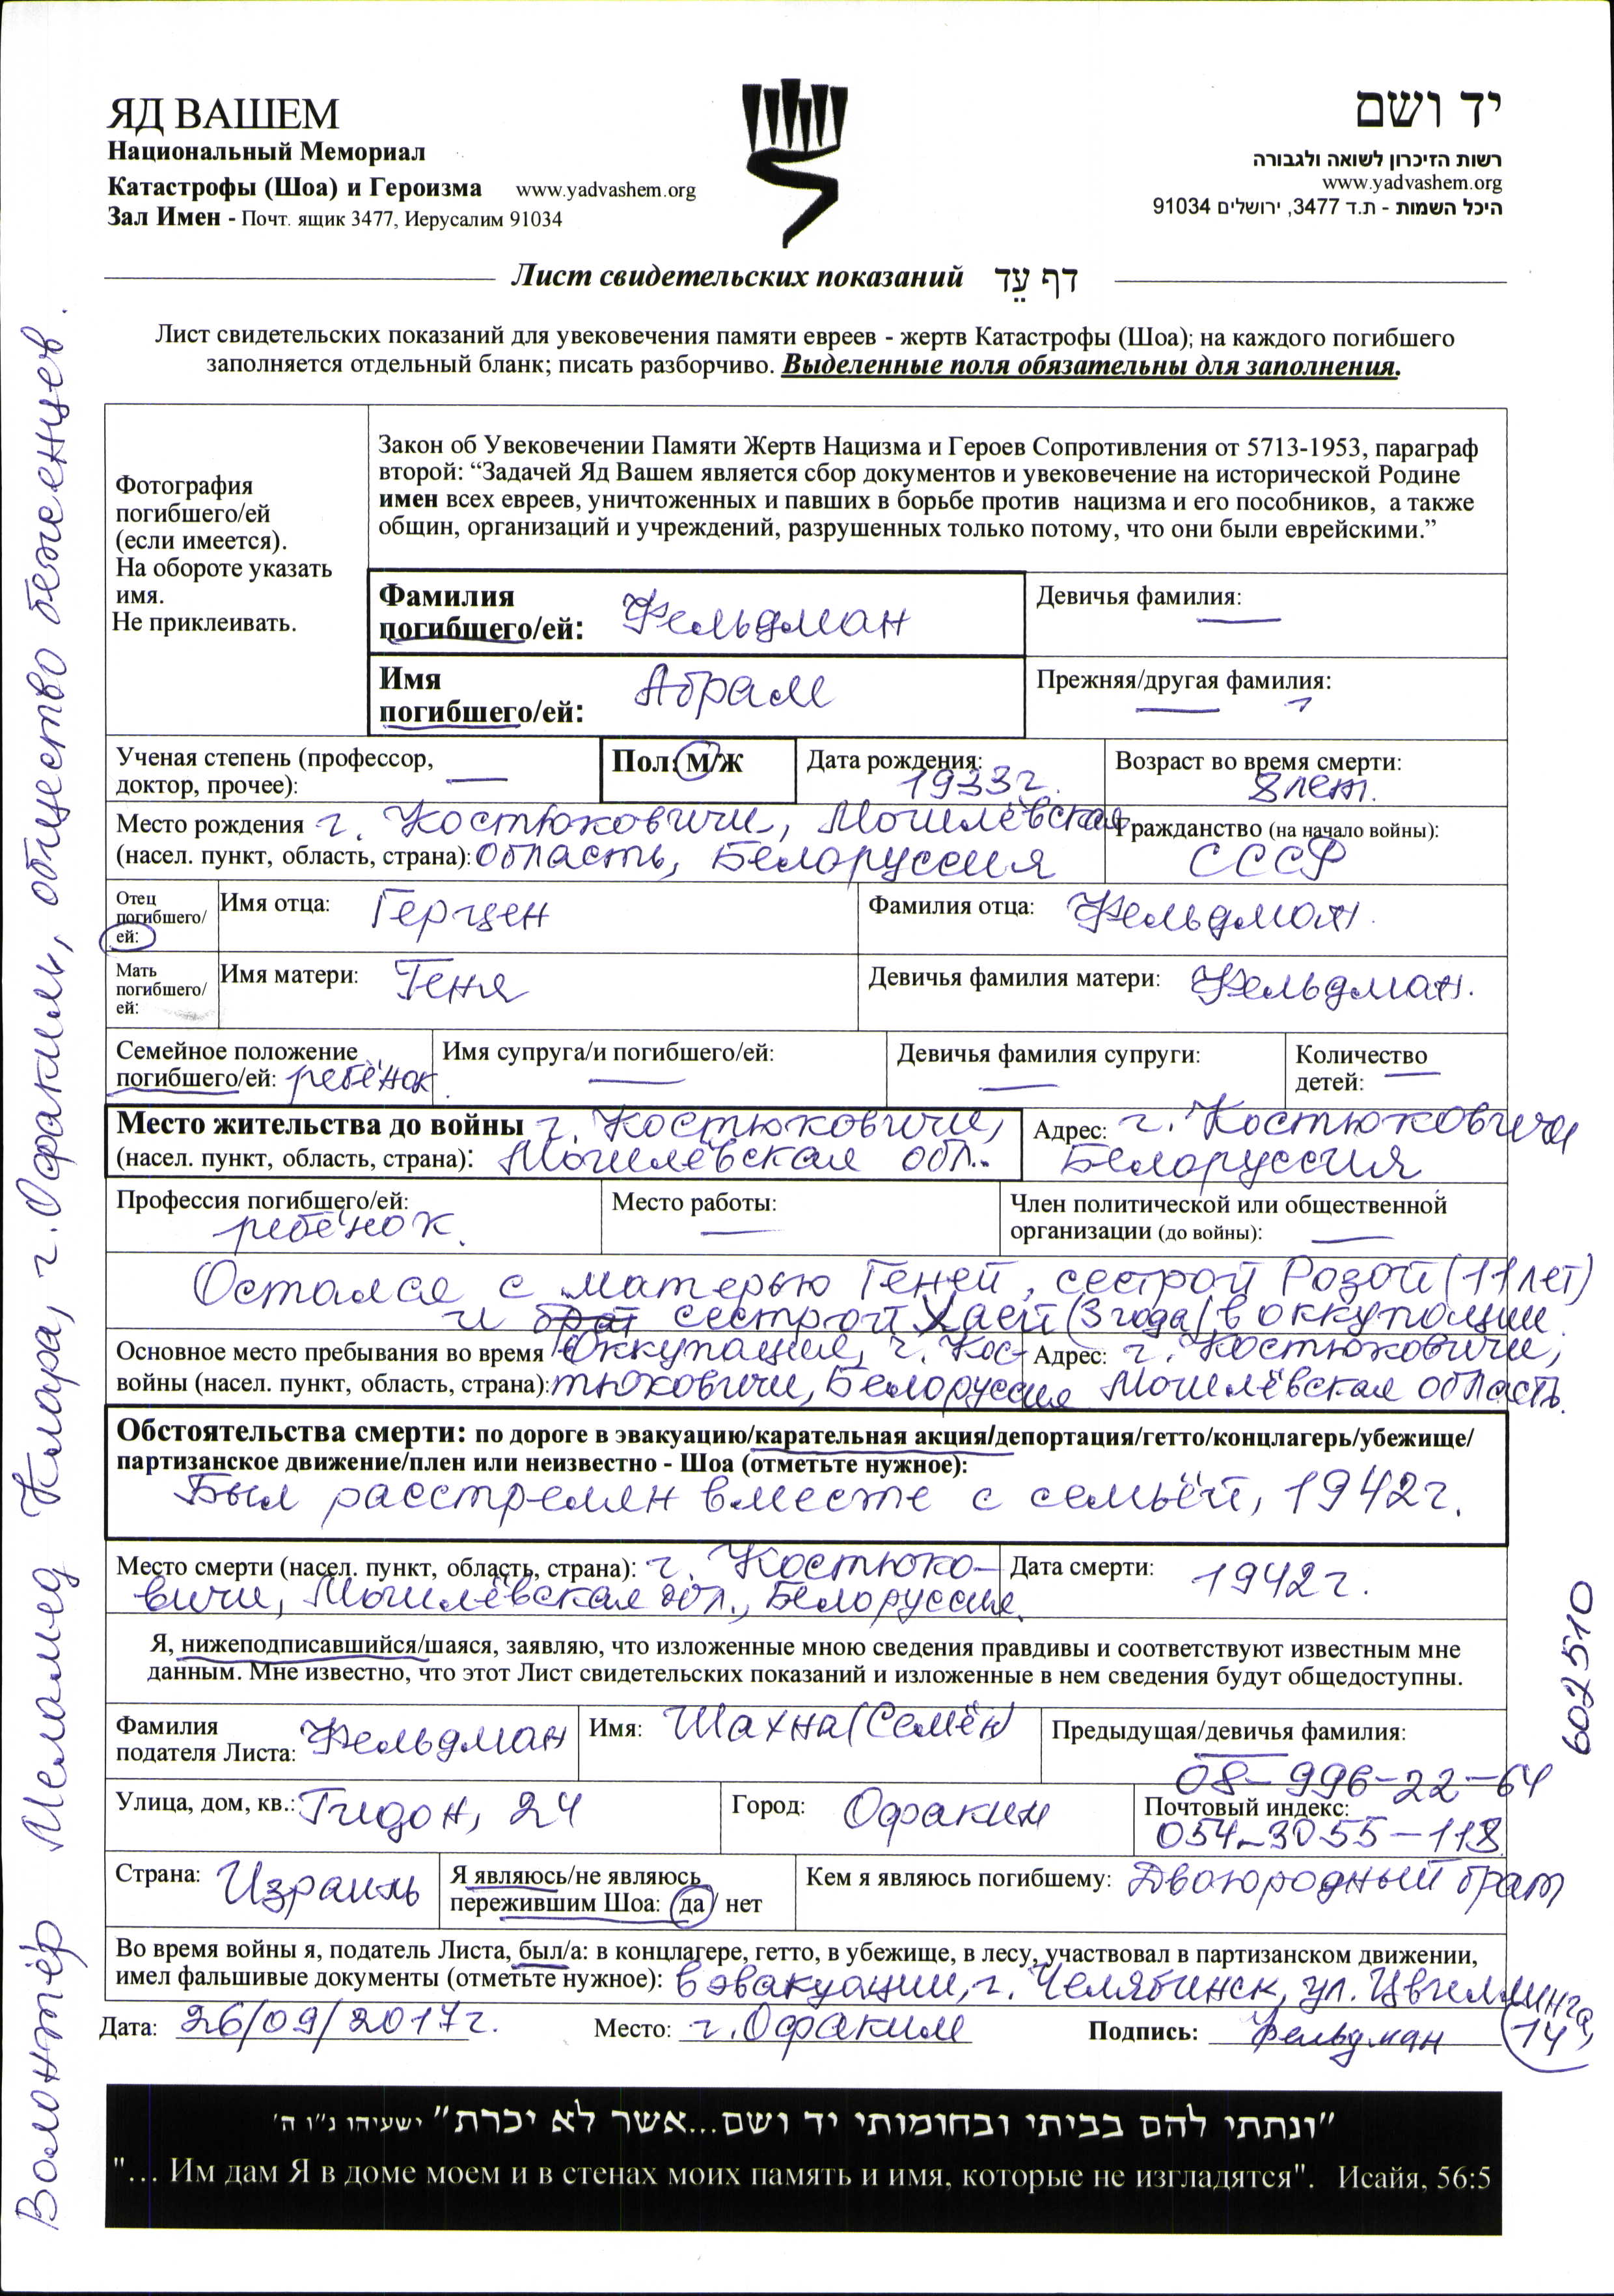 ЯД ВАШЕМ
Национальный Мемориал
Катастрофы (Шоа) и Героизма www.yadvashem.org
Зал Имен - Почт. ящик 3477, Иерусалим 91034
יד ושם
רשות הזיכרון לשואה ולגבורה
www.yadvashem.org
היכל השמות - ת.ד 3477, ירושלים 91034
Лист свидетельских показаний דף עֵד
Лист свидетельских показаний для увековечения памяти евреев - жертв Катастрофы (Шоа); на каждого погибшего
заполняется отдельный бланк; писать разборчиво. Выделенные поля обязательны для заполнения.
Фотография
погибшего/ей
(если имеется).
На обороте указать
имя.
Не приклеивать.
Закон об Увековечении Памяти Жертв Нацизма и Героев Сопротивления от 5713-1953, параграф
второй: “Задачей Яд Вашем является сбор документов и увековечение на исторической Родине
имен всех евреев, уничтоженных и павших в борьбе против нацизма и его пособников, а также
общин, организаций и учреждений, разрушенных только потому, что они были еврейскими.”
Фамилия
погибшего/ей: Фельдман
Девичья фамилия: —
Имя
погибшего/ей: Абрам
Прежняя/другая фамилия: —
Ученая степень (профессор,
доктор, прочее): —
Пол: м/ж
Дата рождения:
1933г.
Возраст во время смерти:
8 лет.
Место рождения г. Костюковичи, Могилёвская
(насел. пункт, область, страна): область, Белоруссия
Гражданство (на начало войны):
СССР
Отец
погибшего/
ей:
Имя отца: Герцен
Фамилия отца: Фельдман.
Мать
погибшего/
ей:
Имя матери: Геня
Девичья фамилия матери: Фельдман.
Семейное положение
погибшего/ей: ребёнок
Имя супруга/и погибшего/ей:
—
Девичья фамилия супруги:
—
Количество
детей: —
Место жительства до войны г. Костюковичи,
(насел. пункт, область, страна): Могилёвская обл.
Адрес: г. Костюковичи
Белоруссия
Профессия погибшего/ей:
ребёнок.
Место работы:
—
Член политической или общественной
организации (до войны): —
Остался с матерью Геней, сестрой Розой (11 лет)
и брат сестрой Хаей (3 года) в оккупации.
Основное место пребывания во время Оккупация, г. Кос-
войны (насел. пункт, область, страна): тюковичи, Белоруссия
Адрес: г. Костюковичи,
Могилёвская область.
Обстоятельства смерти: по дороге в эвакуацию/карательная акция/депортация/гетто/концлагерь/убежище/
партизанское движение/плен или неизвестно - Шоа (отметьте нужное):
Был расстрелян вместе с семьёй, 1942г.
Место смерти (насел. пункт, область, страна): г. Костюко-
вичи, Могилёвская обл., Белоруссия.
Дата смерти: 1942г.
Я, нижеподписавшийся/шаяся, заявляю, что изложенные мною сведения правдивы и соответствуют известным мне
данным. Мне известно, что этот Лист свидетельских показаний и изложенные в нем сведения будут общедоступны.
Фамилия
подателя Листа: Фельдман
Имя: Шахна (Семён)
Предыдущая/девичья фамилия:
—
08-996-22-64
Улица, дом, кв.: Гидон, 24
Город: Офаким
Почтовый индекс:
054-3055-118
Страна: Израиль
Я являюсь/не являюсь
пережившим Шоа: да / нет
Кем я являюсь погибшему: Двоюродный брат
Во время войны я, податель Листа, был/а: в концлагере, гетто, в убежище, в лесу, участвовал в партизанском движении,
имел фальшивые документы (отметьте нужное): в эвакуации, г. Челябинск, ул. Цвиллинга,
14
Дата: 26/09/2017г. Место: г. Офаким Подпись: Фельдман
"ונתתי להם בביתי ובחומותי יד ושם...אשר לא יכרת" ישעיהו נ"ו ה'
"... Им дам Я в доме моем и в стенах моих память и имя, которые не изгладятся". Исайя, 56:5
Волонтёр Меламед Клара, г. Офаким, общество беженцев.
602510